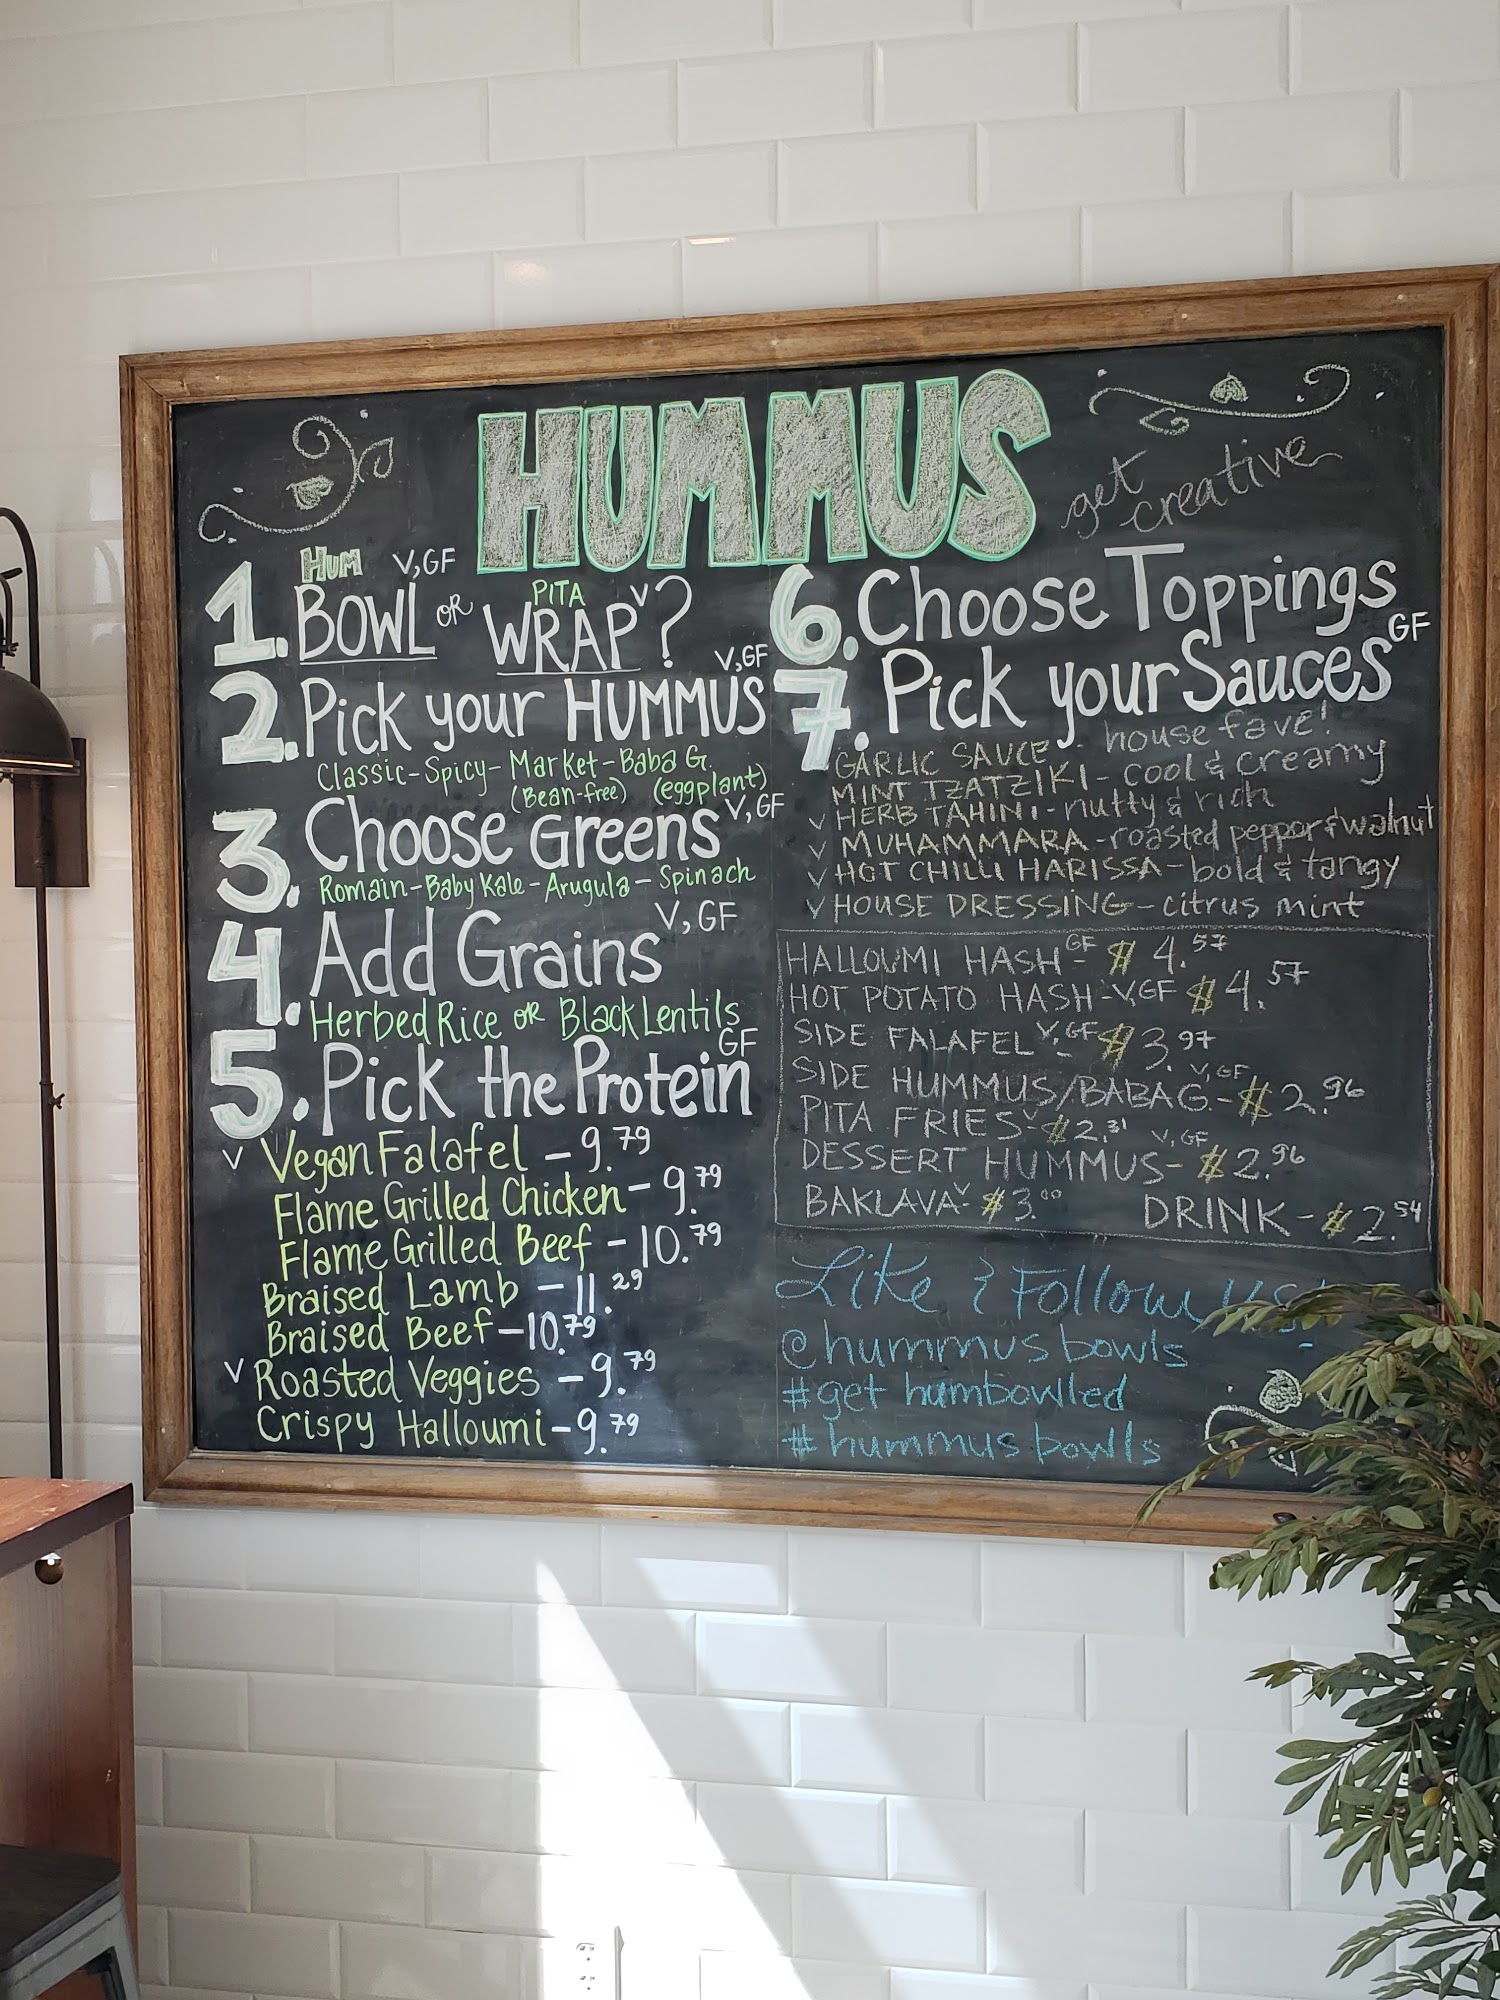 HUMMUS
get
creative
1. HUM BOWL V,GF OR PITA WRAP V?
2. Pick your HUMMUS V,GF
Classic-Spicy-Market-Baba G.
(Bean-free) (eggplant)
3. Choose Greens V,GF
Romain-Baby Kale-Arugula-Spinach
4. Add Grains V,GF
Herbed Rice OR Black Lentils
5. Pick the Protein GF
V Vegan Falafel - 9.79
Flame Grilled Chicken - 9.79
Flame Grilled Beef - 10.79
Braised Lamb - 11.29
Braised Beef - 10.79
V Roasted Veggies - 9.79
Crispy Halloumi - 9.79
6. Choose Toppings
7. Pick your Sauces GF
GARLIC SAUCE - house fave!
MINT TZATZIKI - cool & creamy
V HERB TAHINI - nutty & rich
V MUHAMMARA - roasted pepper & walnut
V HOT CHILLI HARISSA - bold & tangy
V HOUSE DRESSING - citrus mint
HALLOUMI HASH GF - $4.57
HOT POTATO HASH - V,GF $4.57
SIDE FALAFEL V,GF - $3.97
SIDE HUMMUS/BABA G. V,GF - $2.96
PITA FRIES V - $2.31
DESSERT HUMMUS V,GF - $2.96
BAKLAVA V - $3.00 DRINK - $2.54
Like & Follow US!
@hummusbowls
#get humbowled
#hummusbowls